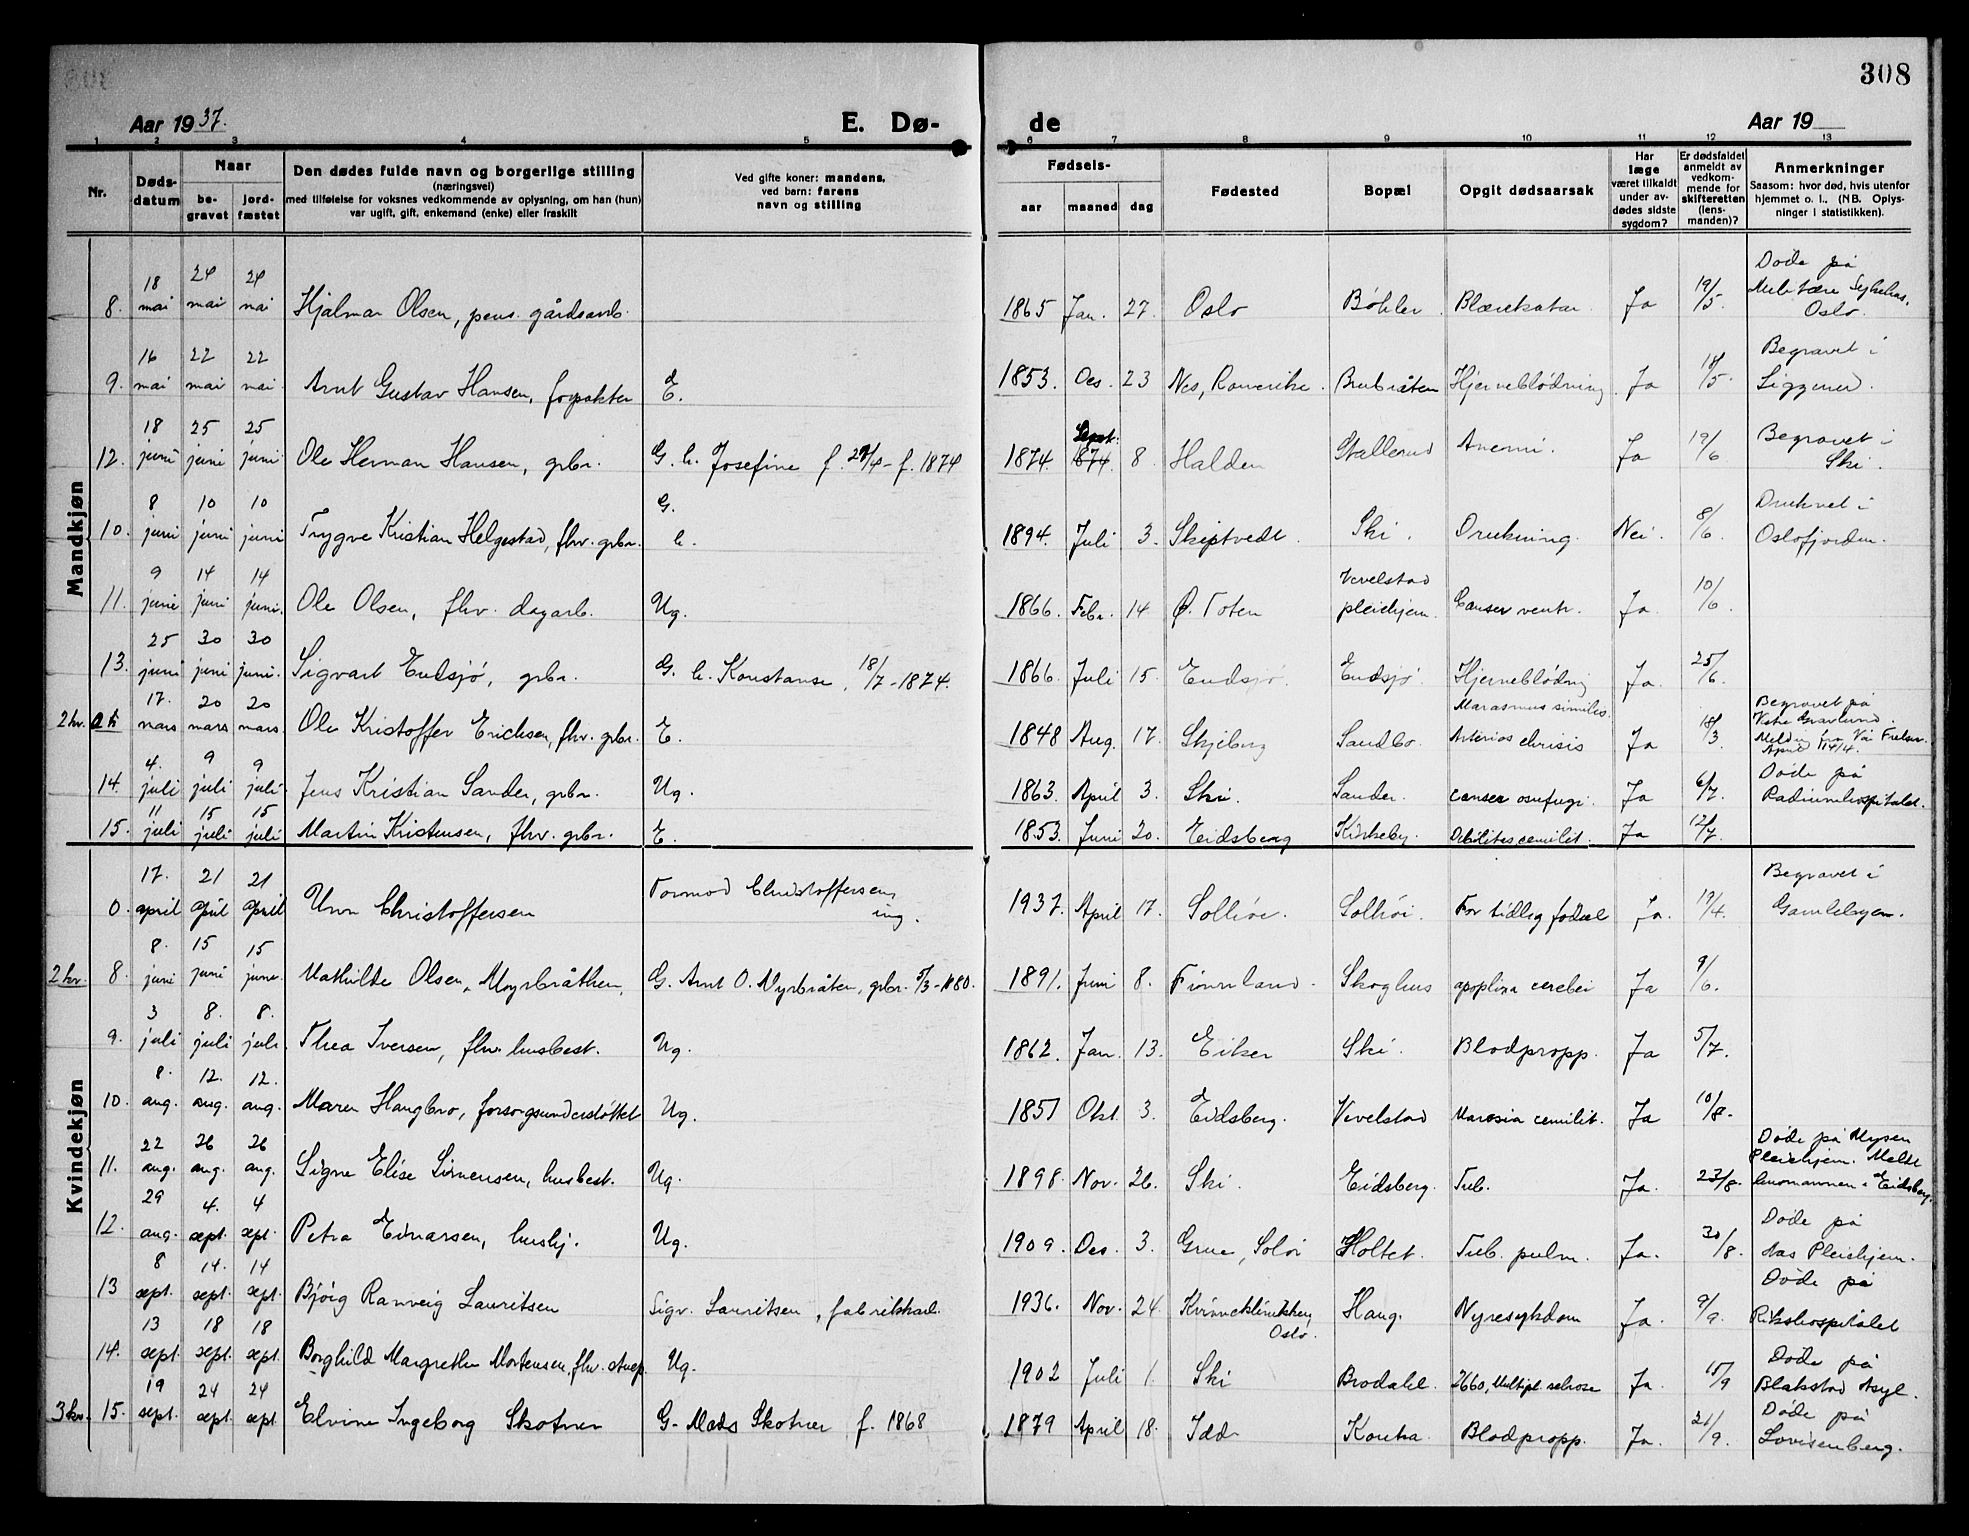 308
Aar 1937. E. Dø- de Aar 19
1 2 3 4 5 6 7 8 9 10 11 12 13
Nr. Dødsdatum Naar begravet jordfæstet
Den dødes fulde navn og borgerlige stilling
(næringsvei)
med tilføielse for voksnes vedkommende av oplysning, om han (hun)
var ugift, gift, enkemand (enke) eller fraskilt
Ved gifte koner: mandens,
ved barn: farens
navn og stilling
Fødsels- aar maaned dag
Fødested Bopæl Opgit dødsaarsak
Har læge været tilkaldt under avdødes sidste sygdom?
Er dødsfaldet anmeldt av vedkommende for skifteretten (lensmanden)?
Anmerkninger
Saasom: hvor død, hvis utenfor
hjemmet o. l.. (NB. Oplysninger i statistikken).
Mandkjøn
8. 18 mai 24 mai 24 mai Hjalmar Olsen, pens. gårdsarb. 1865 Jan. 27. Oslo Bøhler Blærekatar Ja 19/5. Døde på Militære Sykehus, Oslo.
9. 16 mai 22 mai 22 mai Arnt Gustav Hansen, forpakter E. 1853. Des. 23 Nes, Romerike. Brubråten Hjerneblødning Ja 18/5. Begravet i
12. 18 juni 25 juni 25 juni Ole Herman Hansen, grbr. G. m. Josefine f. 29/4 - f. 1874 1874. Sept. 1874. 8. Halden Stallerud Anemi Ja 19/6 Begravet i Ski.
10. 8 juni 10 juni 10 juni Trygve Kristian Helgestad, fhv. grbr. G. 1894. Juli 3. Skiptvedt. Ski. Drukning. Nei. 8/6. Druknet i Oslofjorden.
11. 9 juni 14 juni 14 juni. Ole Olsen, fhv. dagarb. Ug. 1866. Febr. 14 Ø. Toten Vevelstad pleiehjem. Canser ventr. Ja. 10/6.
13. 25 juni 30 juni 30 juni. Sigvart Endsjø, grbr. G. m. Konstanse, 18/7-1874. 1866. Juli 15. Endsjø. Endsjø. Hjerneblødning Ja. 25/6.
2 kv. 17. mars 20 mars 20 mars. Ole Kristoffer Erichsen, fhv. grbr. E. 1848 Aug. 17. Skjeberg Sandbo. Marasmus similis. Ja 18/3. Begravet på Gravlund.
14. 4. juli 9 juli 9 juli. Jens Kristian Sander, grbr. Ug. 1863. April 3. Ski. Sander. canser osufagi. Ja 6/7. Døde på Radiumhospitalet.
15. 11 juli 15 juli 15 juli Martin Kristensen, fhv. grbr. E. 1853. Juni 20. Eidsberg Kirkeby. Debilitas cemilit. Ja 12/7.
Kvindekjøn
0. 17. april 21 april 21 april Unn Christoffersen Tormod Christoffersen, ing. 1937. April 17. Solhøi. Solhøi. For tidlig fødsel Ja. 19/4. Begravet i Gamlebyen.
2 kv. 8. 8. juni 15 juni 15 juni. Mathilde Olsen, Myrbråthen, G. Arnt O. Myrbråten, grbr. 5/3-1880. 1891. Juni 8. Finnland. Skoghus apoplixa cerebei Ja 9/6.
9. 3 juli 8. juli 8. juli. Thea Iversen, fhv. husbest. Ug. 1862. Jan. 13. Eiker Ski. Blodpropp. Ja 5/7.
10. 8. aug. 12. aug. 12. aug. Maren Haugbro, forsorgsunderstøttet Ug. 1851 Okt. 3. Eidsberg. Vevelstad Marosia cemilit. Ja 10/8.
11. 22 aug. 26 aug. 26 aug. Signe Elise Simensen, husbest. Ug. 1898. Nov. 26. Ski. Eidsberg. Tub. Ja. 23/8. Døde på Mysen Pleiehjem. Meldt lensmannen i Eidsberg.
12. 29 aug. 4. sept. 4 sept. Petra Einarsen, hushj. Ug. 1909. Des. 3. Grue, Solør Holtet. Tub. pulm. Ja. 30/8. Døde på Aas Pleiehjem.
13 8 sept. 14. sept. 14 sept. Bjørg Ranveig Lauritsen Sigv. Lauritsen, fabrikkarb. 1936. Nov. 24. Kvinneklinikken, Oslo. Haug. Nyresykdom Ja. 9/9. Døde på Rikshospitalet
14. 13 sept. 18 sept. 18 sept. Borghild Margrethe Mortensen, fhv. Ug. 1902 Juli 1. Ski Brodahl. 2660, Multipl. sclrose Ja. 15/9 Døde på Blakstad Asyl.
3 kv. 15. 19 sept. 24 sept. 24 sept. Elvine Ingeborg Skotner G. Mads Skotner f. 1868 1879 April 18. Idd. Kontra. Blodpropp. Ja. 21/9. Døde på Lovisenberg.